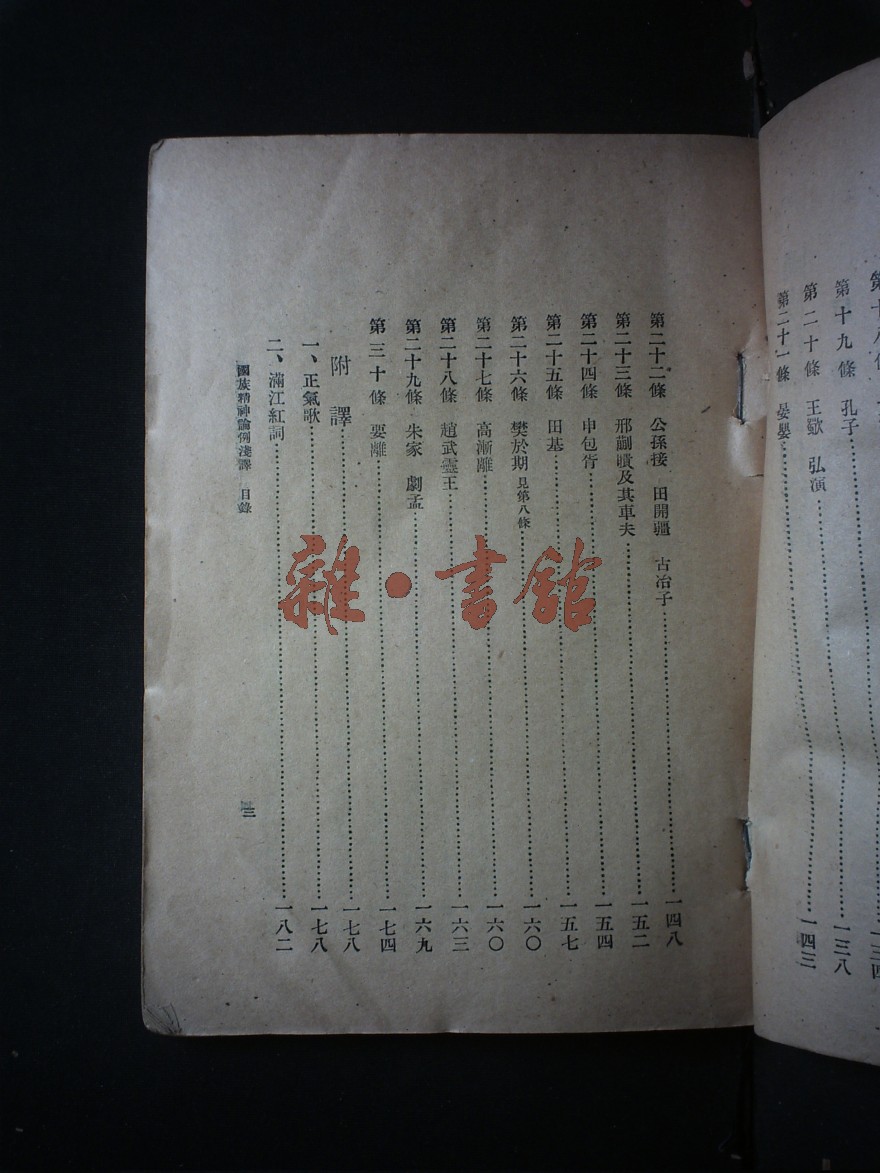 第十九條 孔子……一三八
第二十條 王歜 弘演……一四三
第二十一條 晏嬰
第二十二條 公孫接 田開疆 古冶子……一四八
第二十三條 邢蒯瞶及其車夫……一五二
第二十四條 申包胥……一五四
第二十五條 田基……一五七
第二十六條 樊於期 見第八條……一六〇
第二十七條 高漸離……一六〇
第二十八條 趙武靈王……一六三
第二十九條 朱家 劇孟……一六九
第三十條 要離……一七四
附譯……一七八
一、正氣歌……一七八
二、滿江紅詞……一八二
國族精神論例淺譯 目錄
雜·書館